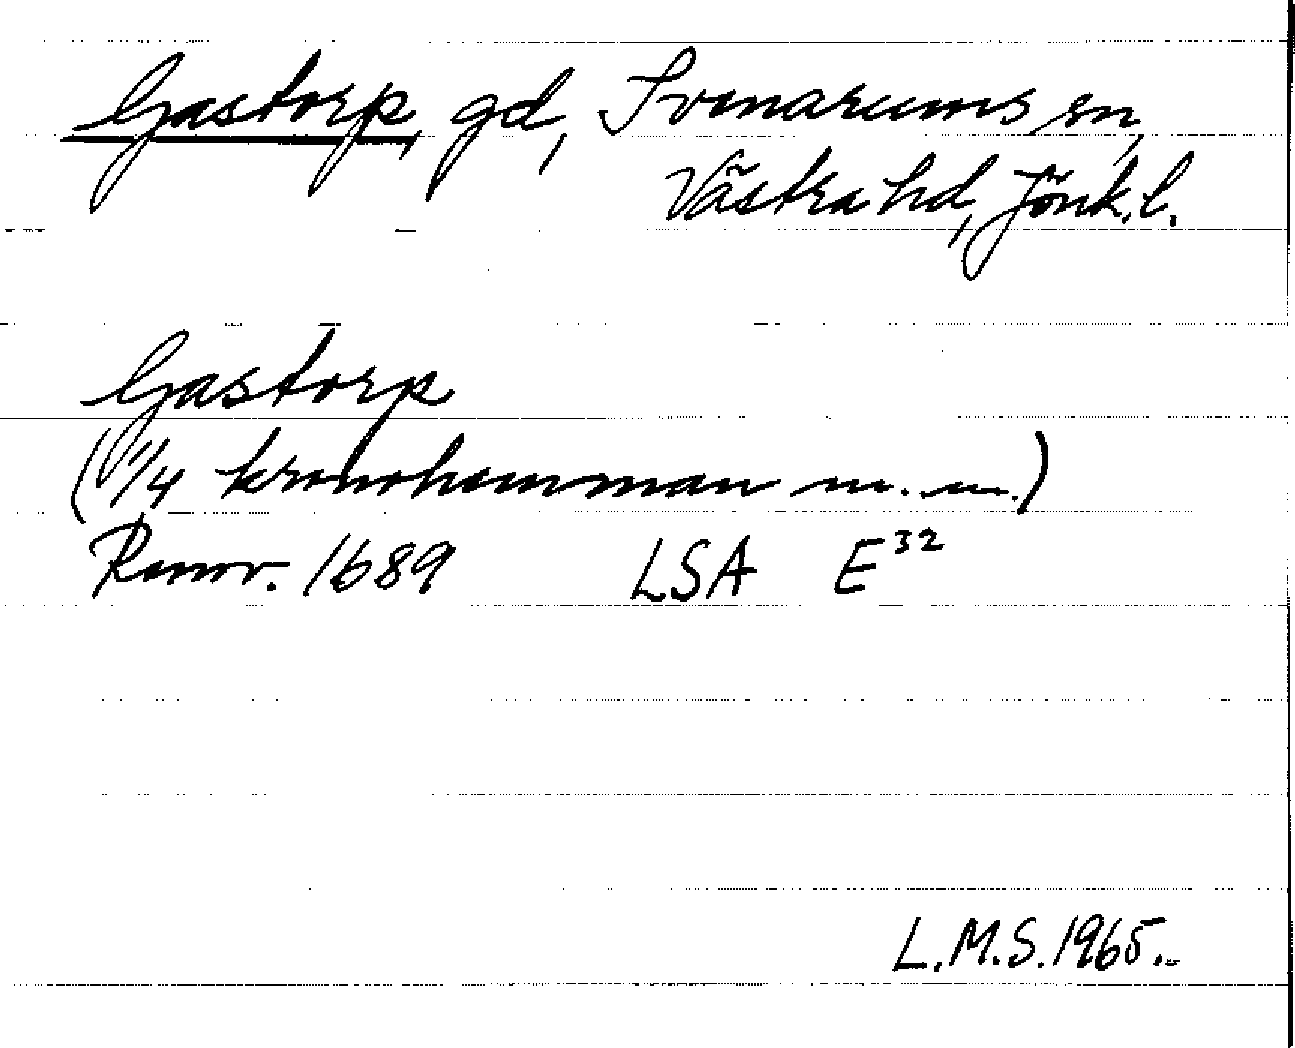 Gastorp, gd, Svenarums sn,
Västra hd, Jönk. l.
Gastorp
(1/4 kronohemman m. m.)
Renov. 1689 LSA E32
L.M.S. 1965.